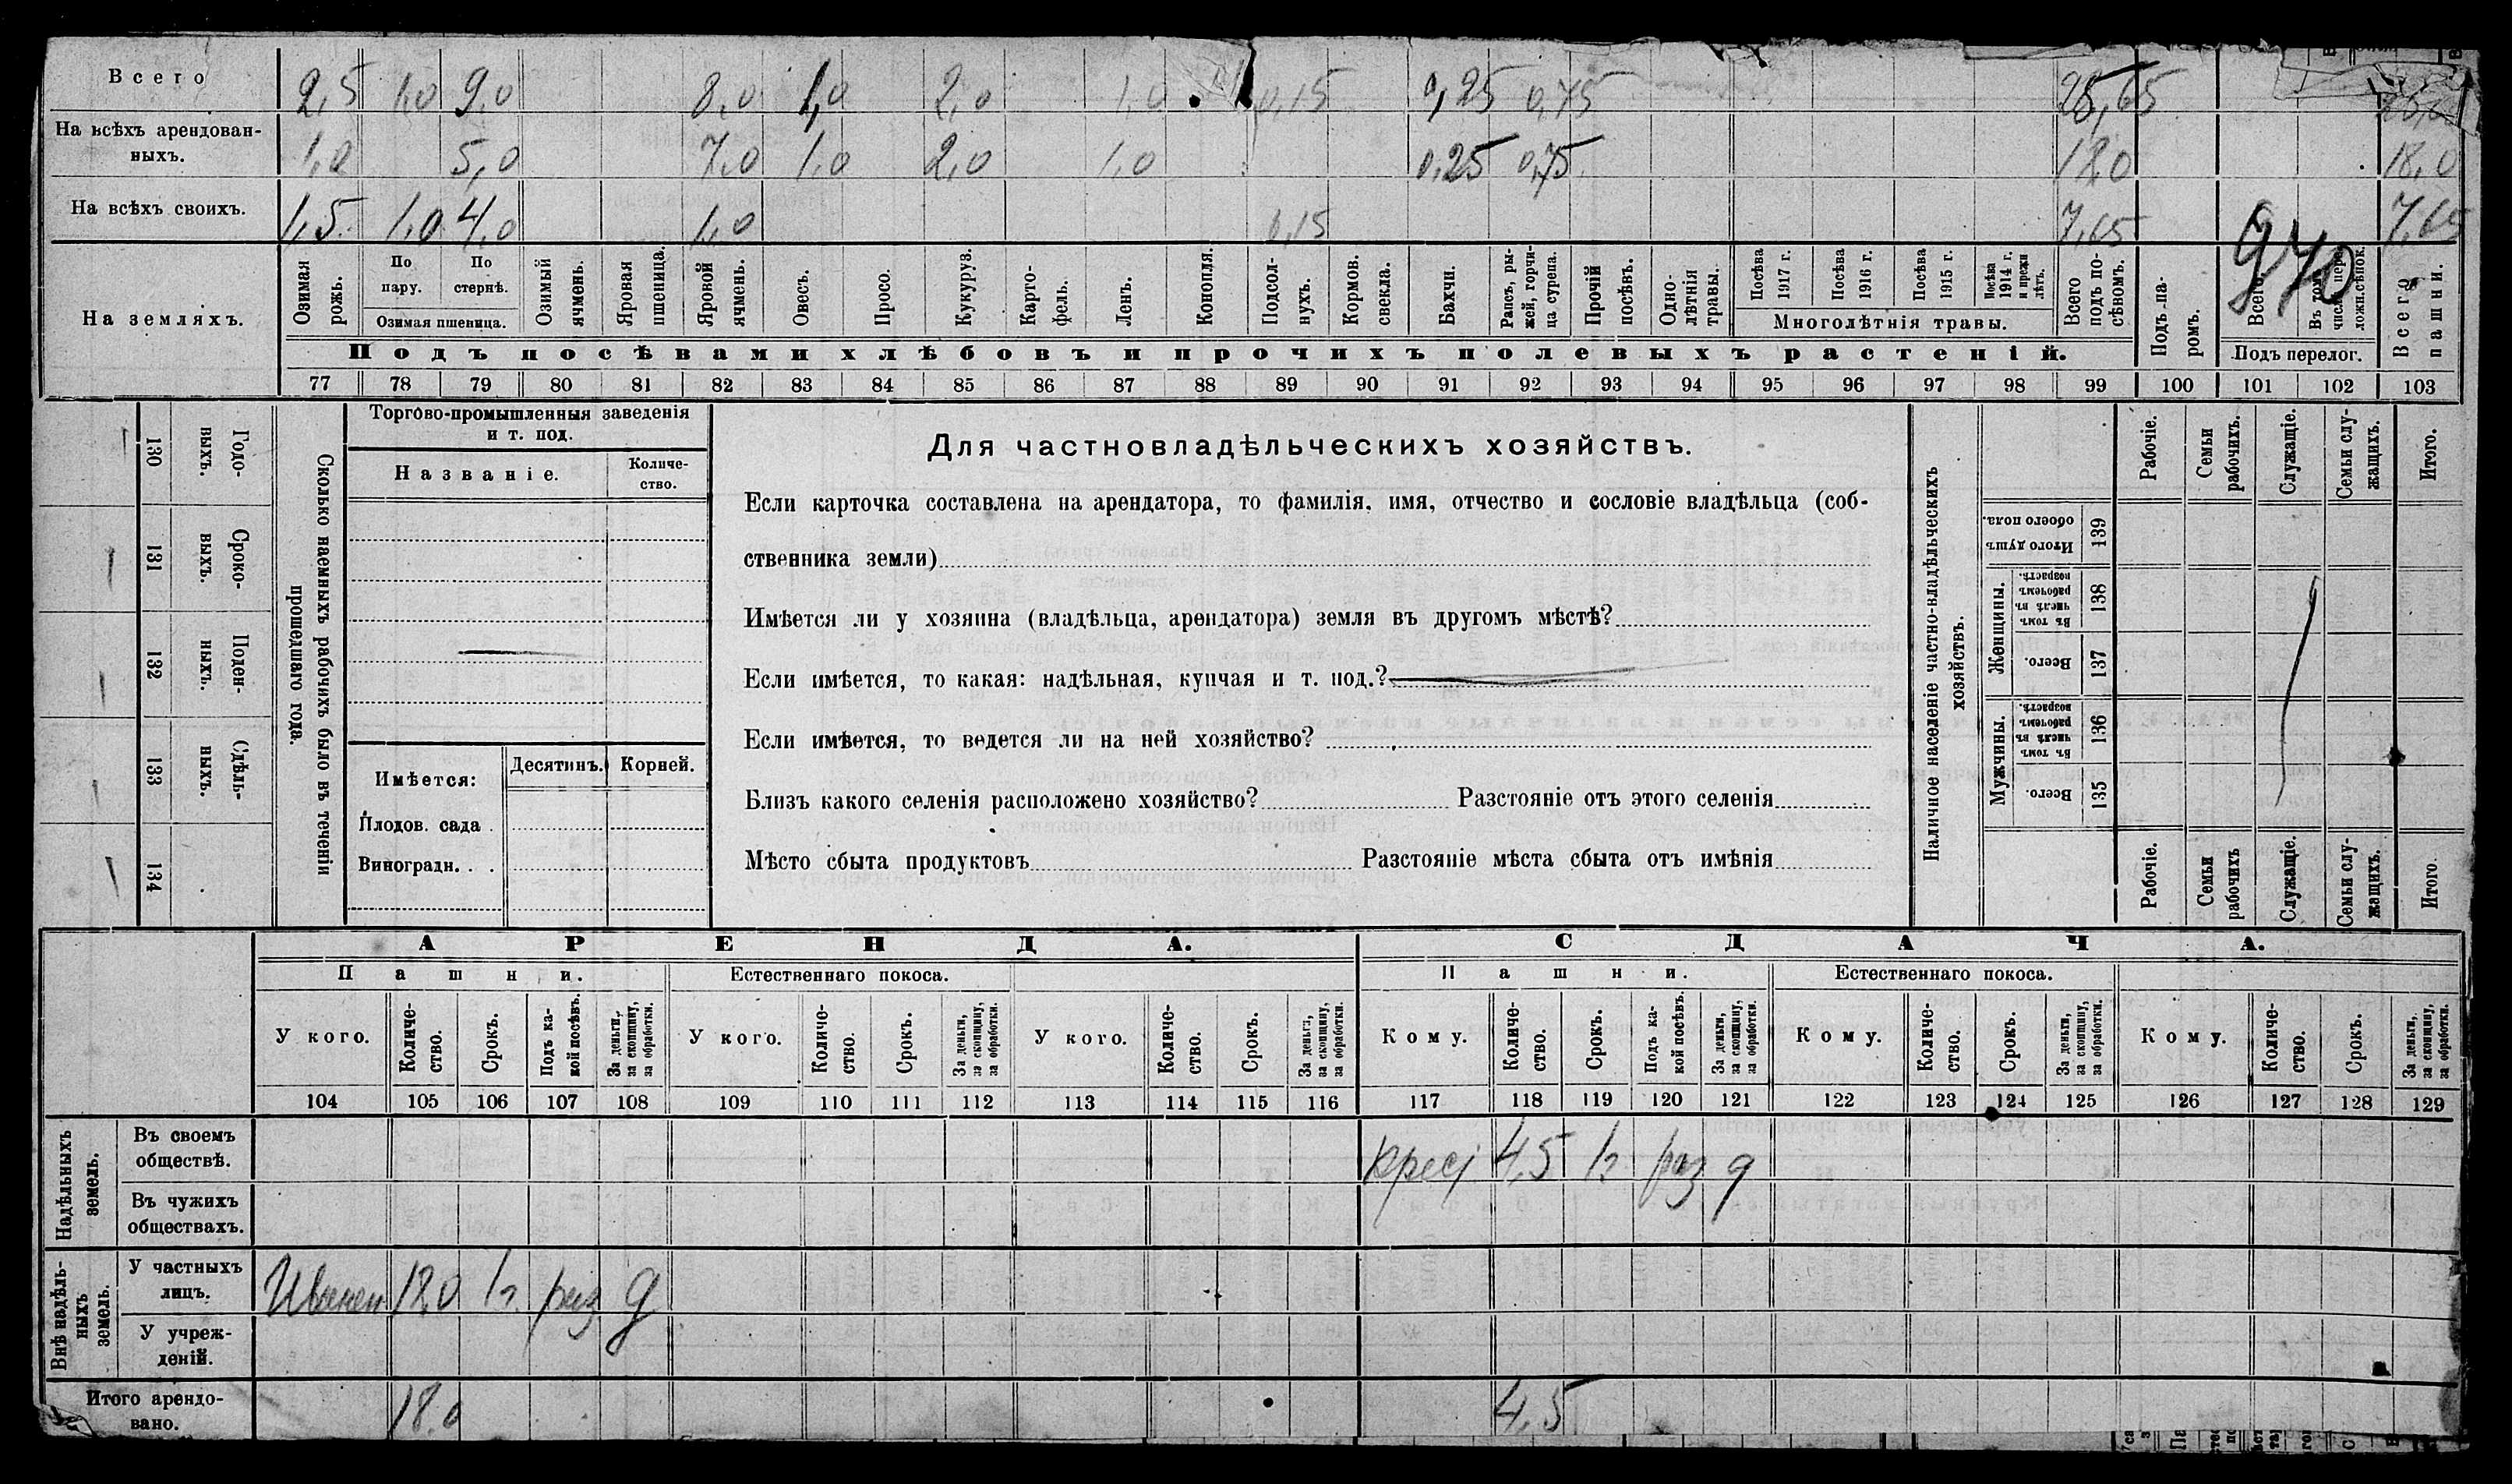 Всего 2,5 1,0 9,0 8,0 1,0 2,0 1,0 0,15 0,25 0,75 25,65
На всѣхъ арендован-
ныхъ. 1,0 5,0 7,0 1,0 2,0 1,0 0,25 0,75 18,0 18,0
На всѣхъ своихъ. 1,5 1,0 4,0 1,0 0,15 7,65 7,65
940
На земляхъ.
Озимая рожь.
По пару.
По стернѣ.
Озимая пшеница.
Озимый ячмень.
Яровая пшеница.
Яровой ячмень.
Овесъ.
Просо.
Кукуруз.
Карто-
фель.
Ленъ.
Конопля.
Подсол-
нухъ.
Кормов. свекла.
Бахчи.
Рапсъ, ры-
жей, горчи-
ца сурепа.
Прочій посѣвъ.
Одно-
лѣтнія травы.
Посѣва 1917 г.
Посѣва 1916 г.
Посѣва 1915 г.
Посѣва 1914 г. и прежн лѣтъ.
Многолѣтнія травы.
Всего подъ по-
сѣвомъ.
Подъ па-
ромъ.
Всего
Въ томъ числ. пере-
ложн. сѣнок.
Подъ перелог.
Всего пашни.
Подъ посѣвами хлѣбовъ и прочихъ полевыхъ растеній.
77 78 79 80 81 82 83 84 85 86 87 88 89 90 91 92 93 94 95 96 97 98 99 100 101 102 103
130 Годо-
выхъ.
131 Сроко-
выхъ.
132 Поден-
ныхъ.
133 Сдѣль-
ныхъ.
134
Сколько наемныхъ рабочихъ было въ теченіи
прошедшаго года.
Торгово-промышленныя заведенія
и т. под.
Названіе.
Количе-
ство.
Имѣется: Десятинъ. Корней.
Плодов. сада .
Виноградн. . .
Для частновладѣльческихъ хозяйствъ.
Если карточка составлена на арендатора, то фамилія, имя, отчество и сословіе владѣльца (соб-
ственника земли)
Имѣется ли у хозяина (владѣльца, арендатора) земля въ другомъ мѣстѣ?
Если имѣется, то какая: надѣльная, купчая и т. под.?
Если имѣется, то ведется ли на ней хозяйство?
Близъ какого селенія расположено хозяйство? Разстояніе отъ этого селенія
Мѣсто сбыта продуктовъ Разстояніе мѣста сбыта отъ имѣнія
Наличное населеніе частно-владѣльческихъ
хозяйствъ.
Рабочіе.
Семьи рабочихъ.
Служащіе.
Семьи слу-
жащихъ.
Итого.
Итого душъ обоего пола. 139
Женщины.
Въ томъ числѣ въ рабочемъ возрастѣ. 138
Всего. 137
Мужчины.
Въ томъ числѣ въ рабочемъ возрастѣ. 136
Всего. 135
Рабочіе.
Семьи рабочихъ
Служащіе.
Семьи слу-
жащихъ.
Итого.
АРЕНДА. СДАЧА.
Пашни. Естественнаго покоса. Пашни. Естественнаго покоса.
У кого.
Количе-
ство.
Срокъ.
Подъ ка-
кой посѣвъ.
За деньги, за скопщину, за обработки.
У кого.
Количе-
ство.
Срокъ.
За деньги, за скопщину, за обработки.
У кого.
Количе-
ство.
Срокъ.
За деньги, за скопщину, за обработки.
Кому.
Количе-
ство.
Срокъ.
Подъ ка-
кой посѣвъ.
За деньги, за скопщину, за обработки.
Кому.
Количе-
ство.
Срокъ.
За деньги, за скопщину, за обработки.
Кому.
Количе-
ство.
Срокъ.
За деньги, за скопщину, за обработки.
104 105 106 107 108 109 110 111 112 113 114 115 116 117 118 119 120 121 122 123 124 125 126 127 128 129
Надѣльныхъ
земель.
Въ своемъ
обществѣ. крест 4,5 1г раз д
Въ чужихъ
обществахъ.
Внѣ надѣль-
ныхъ
земель.
У частныхъ
лицъ. 18,0 1г. раз д
У учреж-
деній.
Итого арендо-
вано. 18,0 4,5